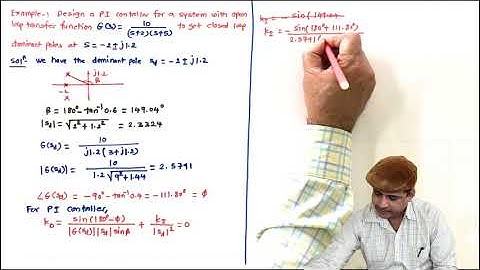 Example-1 Design a PI controller for a system with open
loop transfer function G(s) = 10/((s+2)(s+5)) to get closed loop
dominant poles at s = -2 ± j1.2
Solⁿ. we have the dominant pole sd = -2 + j1.2
j1.2
β
-2
β = 180° - tan⁻¹ 0.6 = 149.04°
|sd| = √(2² + 1.2²) = 2.3324
G(sd) = 10/(j1.2(3+j1.2))
|G(sd)| = 10/(1.2√(9+1.44)) = 2.5791
∠G(sd) = -90° - tan⁻¹ 0.4 = -111.80° = φ
For PI controller,
kD = sin(180°-φ)/(|G(sd)||sd| sinβ) + kI/|sd|² = 0
kI = - sin(149.04
kI = - sin(180°+111.80°)/2.5791